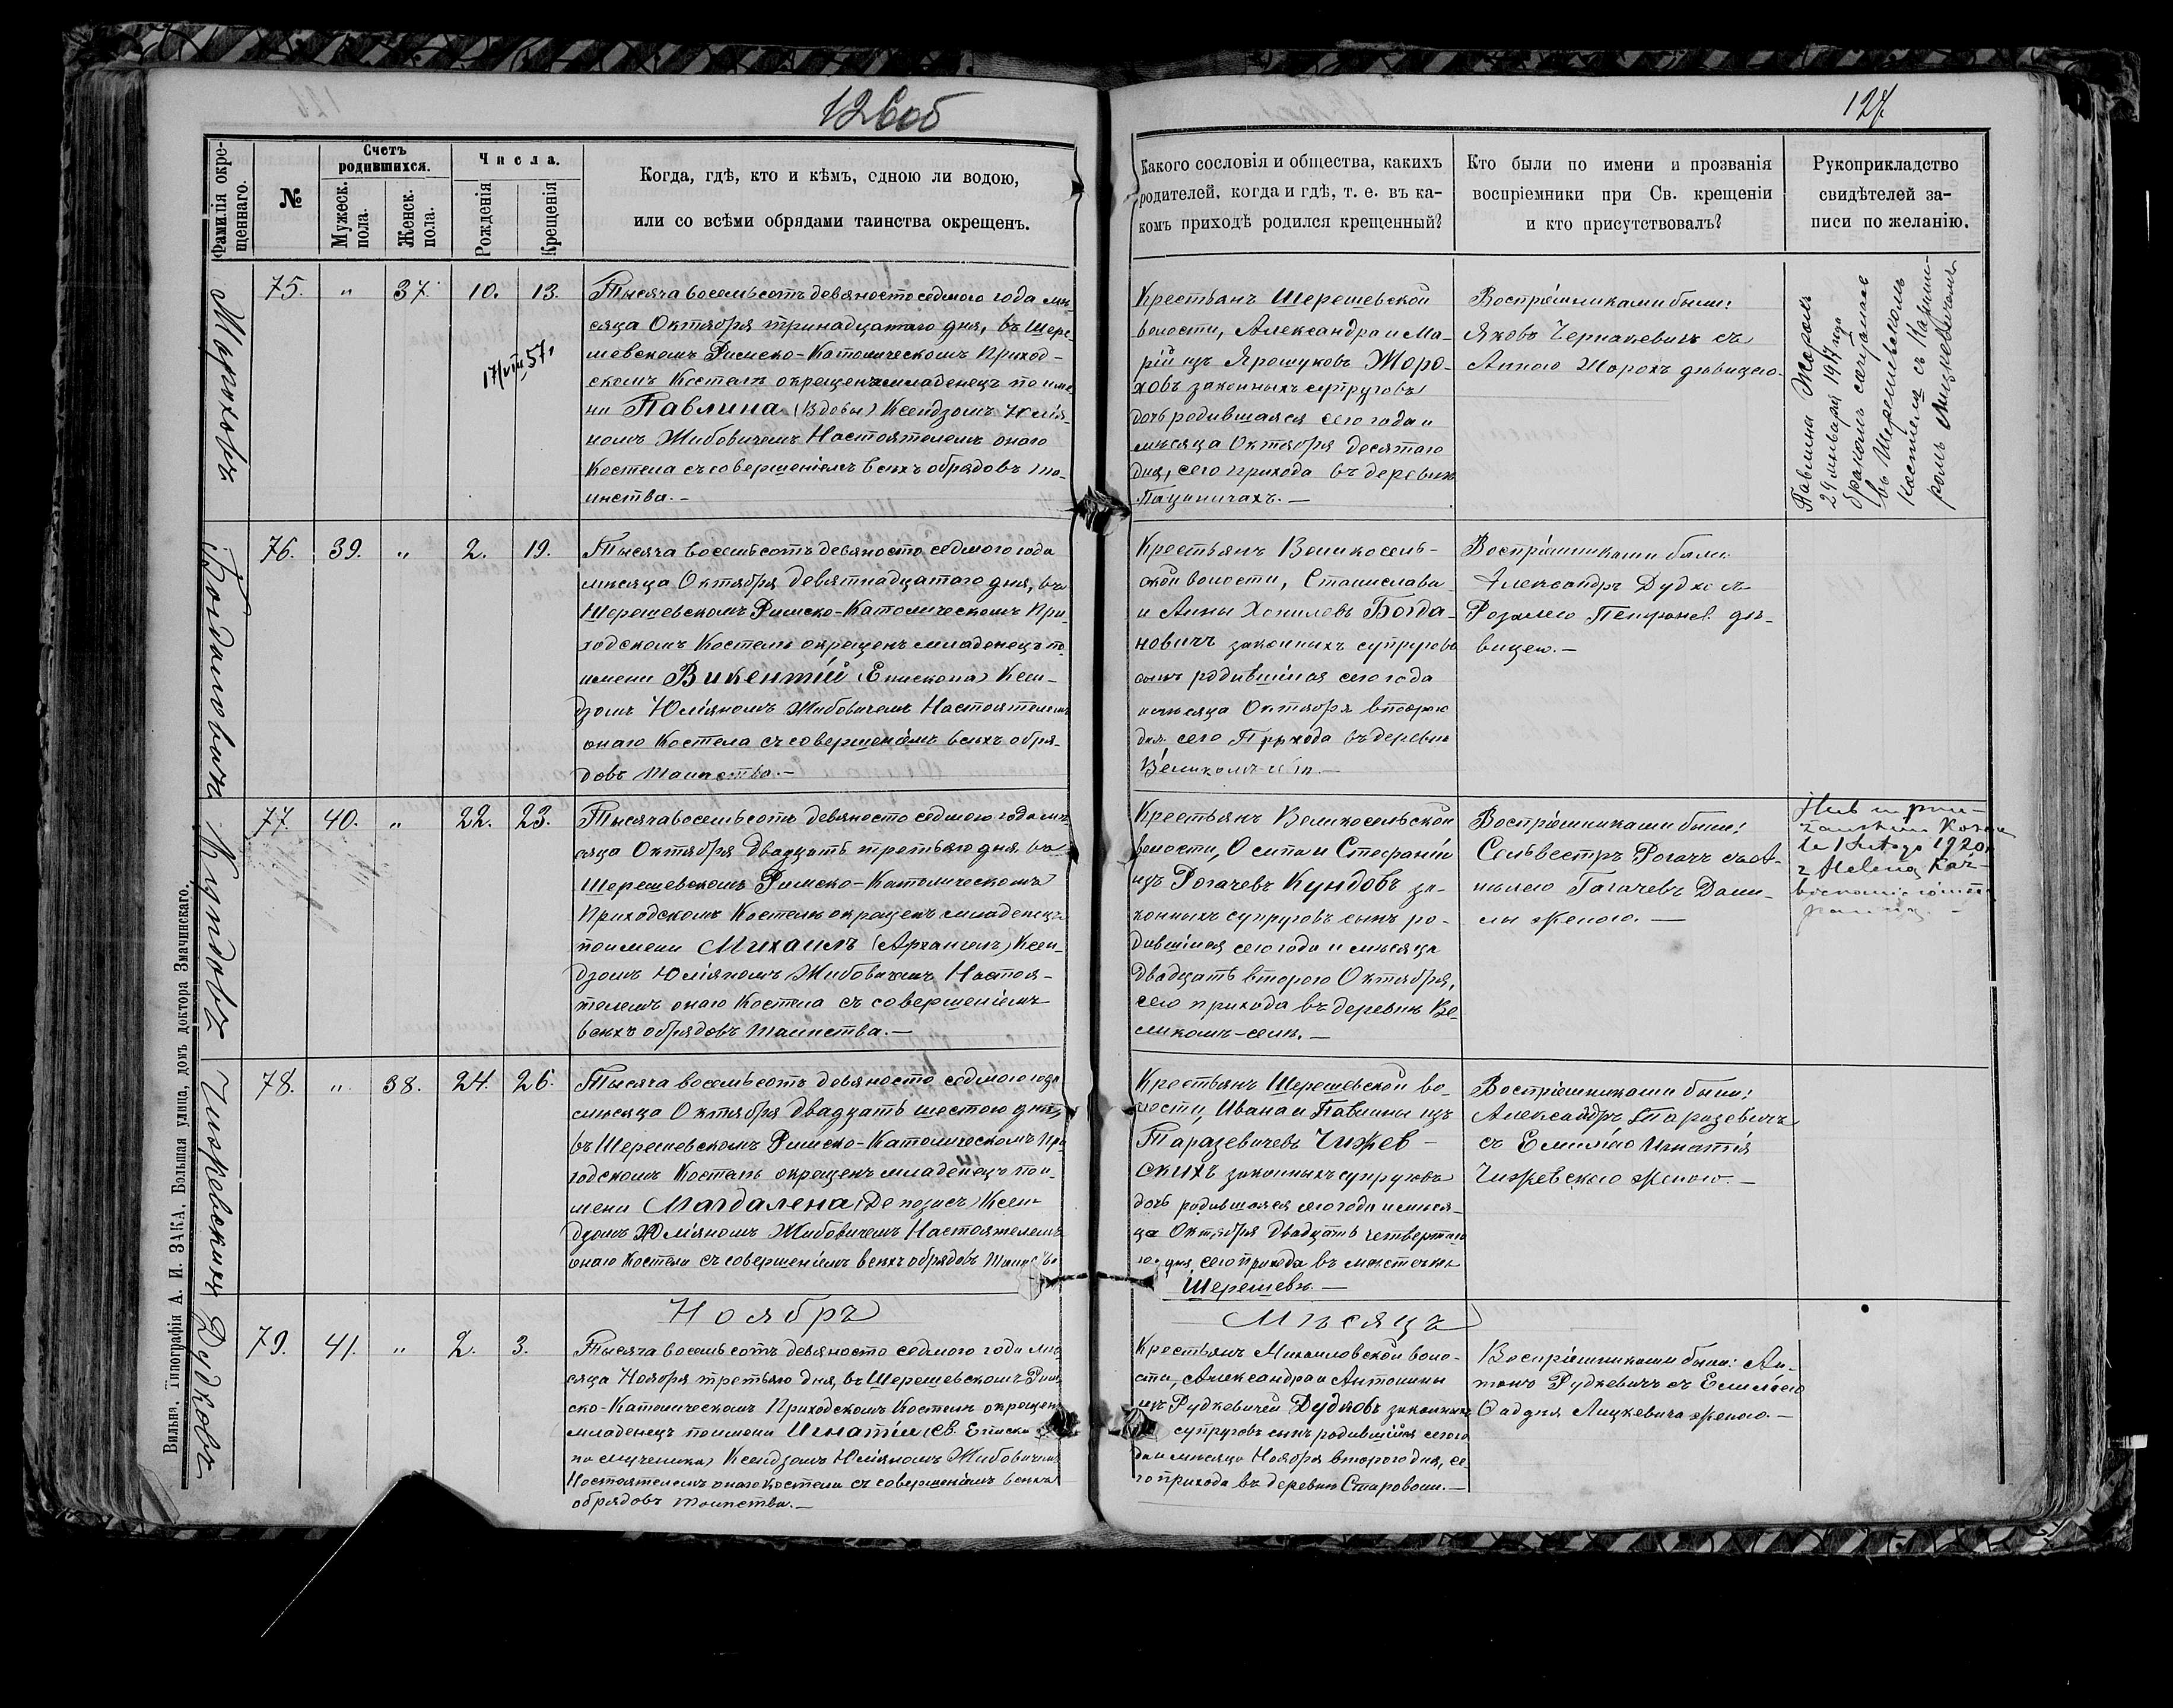 126об
127
Фамилія окре-
щеннаго.
№
Счетъ
родившихся.
Мужеск.
пола.
Женск.
пола.
Числа.
Рожденія
Крещенія
Когда, гдѣ, кто и кѣмъ, одною ли водою,
или со всѣми обрядами таинства окрещенъ.
Какого сословія и общества, какихъ
родителей, когда и гдѣ, т. е. въ ка-
комъ приходѣ родился крещенный?
Кто были по имени и прозванія
воспріемники при Св. крещеніи
и кто присутствовалъ?
Рукоприкладство
свидѣтелей за-
писи по желанію.
Жороховъ
75. " 37. 10. 13.
17/VIII 57.
Тысяча восемьсотъ девяносто седмого года мѣ-
сяца Октября тринадцатаго дня, въ Шере-
шевскомъ Римско-Католическомъ Приход-
скомъ Костелѣ окрещенъ младенецъ по име-
ни Павлина (Вдовы) Ксендзомъ Юлія-
номъ Жибовичемъ Настоятелемъ онаго
Костела съ совершеніемъ всѣхъ обрядовъ та-
инства.—
Крестьянъ Шерешевской
волости, Александра и Ма-
ріи изъ Ярошуковъ Жоро-
ховъ законныхъ супруговъ
дочь родившаяся сего года и
мѣсяца Октября десятаго
дня, сего прихода въ деревнѣ
Пацыничахъ.—
Воспріемниками были:
Яковъ Чернакевичъ съ
Анною Жорохъ дѣвицею.
Павлина Жорохъ
29 января 1917 года
бракомъ сочеталась
въ Шерешевскомъ
Костелѣ съ
Мицкевичемъ
Богдановичъ
76. 39. " 2. 19.
Тысяча восемьсотъ девяносто седмого года
мѣсяца Октября девятнадцатаго дня, въ
Шерешевскомъ Римско-Католическомъ При-
ходскомъ Костелѣ окрещенъ младенецъ по
имени Викентій (Епископа) Ксен-
дзомъ Юліяномъ Жибовичемъ Настоятелемъ
онаго Костела съ совершеніемъ всѣхъ обря-
довъ таинства.—
Крестьянъ Великосель-
ской волости, Станислава
и Анны Хониловъ Богда-
новичъ законныхъ супруговъ
сынъ родившійся сего года
и мѣсяца Октября второго
дня сего Прихода въ деревнѣ
Великомъ-селѣ.—
Воспріемниками были
Александръ Дудко съ
Розаліею дѣ-
вицею.—
Кундовъ
77. 40. " 22. 23.
Тысяча восемьсотъ девяносто седмого года мѣ-
сяца Октября двадцать третьяго дня, въ
Шерешевскомъ Римско-Католическомъ
Приходскомъ Костелѣ окрещенъ младенецъ
по имени Михаилъ (Архангела) Ксен-
дзомъ Юліяномъ Жибовичемъ Настоя-
телемъ онаго Костела съ совершеніемъ
всѣхъ обрядовъ таинства.—
Крестьянъ Великосельской
волости, Осипа и Стефаніи
изъ Рогачевъ Кундовъ за-
конныхъ супруговъ сынъ ро-
дившійся сего года и мѣсяца
двадцать второго Октября,
сего прихода въ деревнѣ Ве-
ликомъ-селѣ.—
Воспріемниками были:
Сельвестръ Рогачъ съ А-
Дани-
лы женою.—
Ślub w pru-
żańskim Koście-
le 1 lutego 1920
z Heleną
Чижевскихъ
78. " 38. 24. 26.
Тысяча восемьсотъ девяносто седмого года
мѣсяца Октября двадцать шестого дня,
въ Шерешевскомъ Римско-Католическомъ При-
ходскомъ Костелѣ окрещенъ младенецъ по и-
мени Магдалена (Де пазись) Ксен-
дзомъ Юліяномъ Жибовичемъ Настоятелемъ
онаго Костела съ совершеніемъ всѣхъ обрядовъ Таинства
Крестьянъ Шерешевской во-
лости, Ивана и Павлины изъ
Таразевичевъ Чижев-
скихъ законныхъ супруговъ
дочь родившаяся сего года и мѣся-
ца Октября двадцать четверта-
го дня, сего прихода въ мѣстечкѣ
Шерешевѣ.—
Воспріемниками были:
Александръ Таразевичъ
съ Емиліею Игнатія
Чижевскаго женою.—
Ноябрь
Мѣсяцъ
Дудковъ
79. 41. " 2. 3.
Тысяча восемьсотъ девяносто седмого года мѣ-
сяца Ноября третьяго дня, въ Шерешевскомъ Рим-
ско-Католическомъ Приходскомъ Костелѣ окрещенъ
младенецъ по имени Игнатій (Св. Еписко-
па мученика) Ксендзомъ Юліяномъ Жибовичемъ
Настоятелемъ онаго Костела съ совершеніемъ всѣхъ
обрядовъ таинства.—
Крестьянъ Михайловской воло-
сти, Александра и Антонины
изъ Рудкевичей Дудковъ законныхъ
супруговъ сынъ родившійся сего го-
да и мѣсяца Ноября второго дня, се-
го прихода въ деревнѣ Старовали.—
Воспріемниками были: Ан-
тонъ Рудкевичъ съ Емиліею
Фаддея Лицкевича женою.—
Вильна, Типографія А. И. ЗАКА, Большая улица, домъ доктора Змачинскаго.